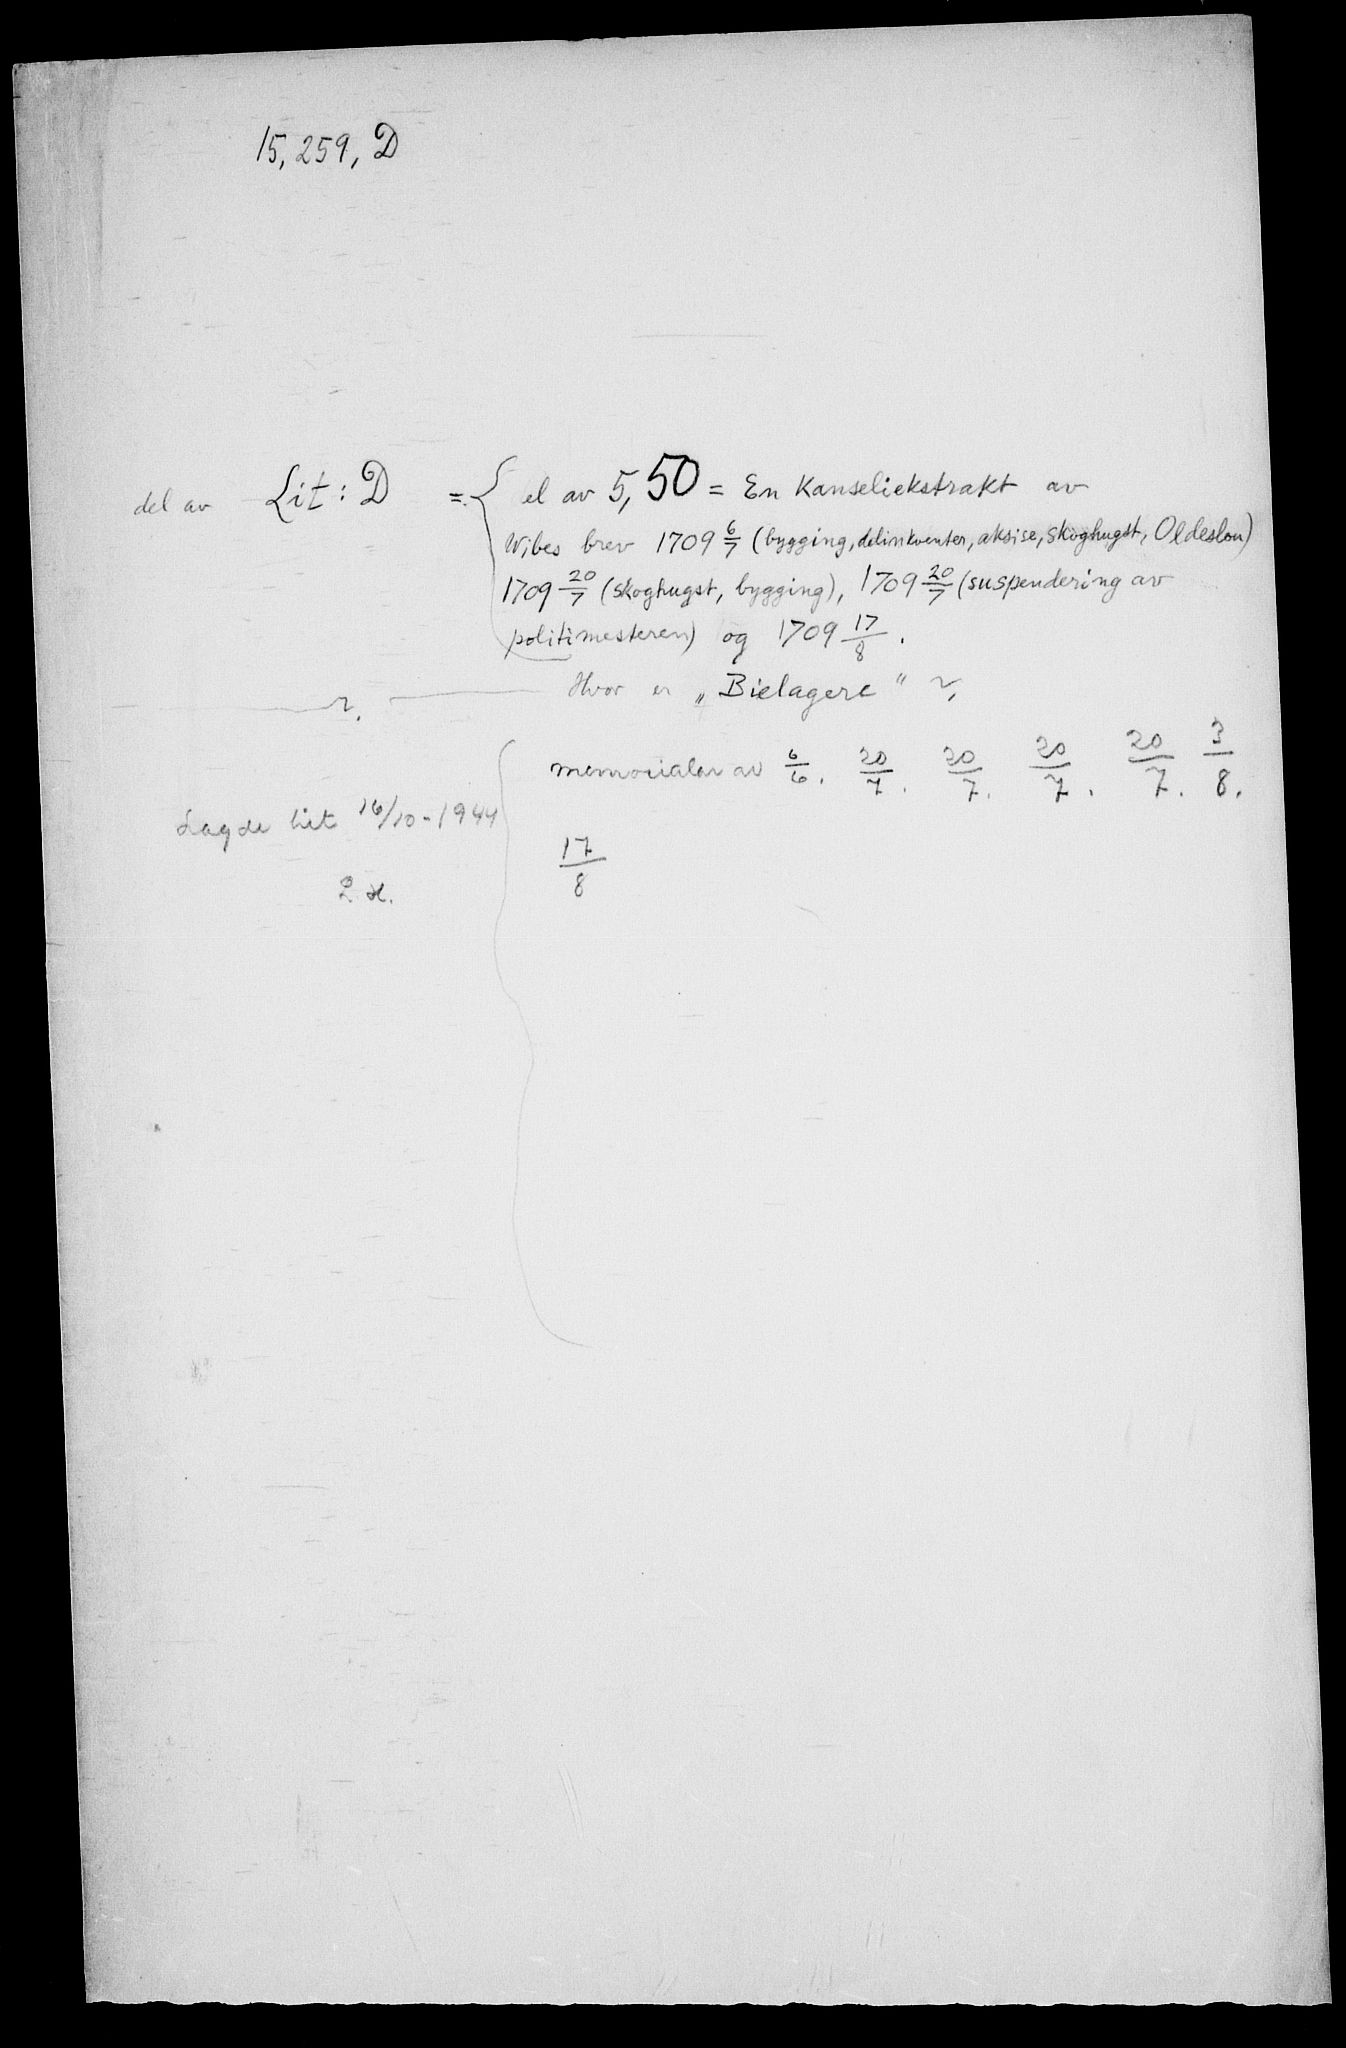 15,259, D
del av Lit: D = el av 5,50 = En Kanseliekstrakt av
Wibes brev 1709 6/7 (bygging, delinkventer, aksise, skoghugst, Oldeslou)
1709 20/7 (skoghugst, bygging), 1709 20/7 (suspendering av
politimesteren) og 1709 17/8.
Hvor er „Bielagere“ ?
?
memorialer av 6/6. 20/7. 20/7. 20/7. 20/7. 3/8.
Lagde hit 16/10-1944
17/8